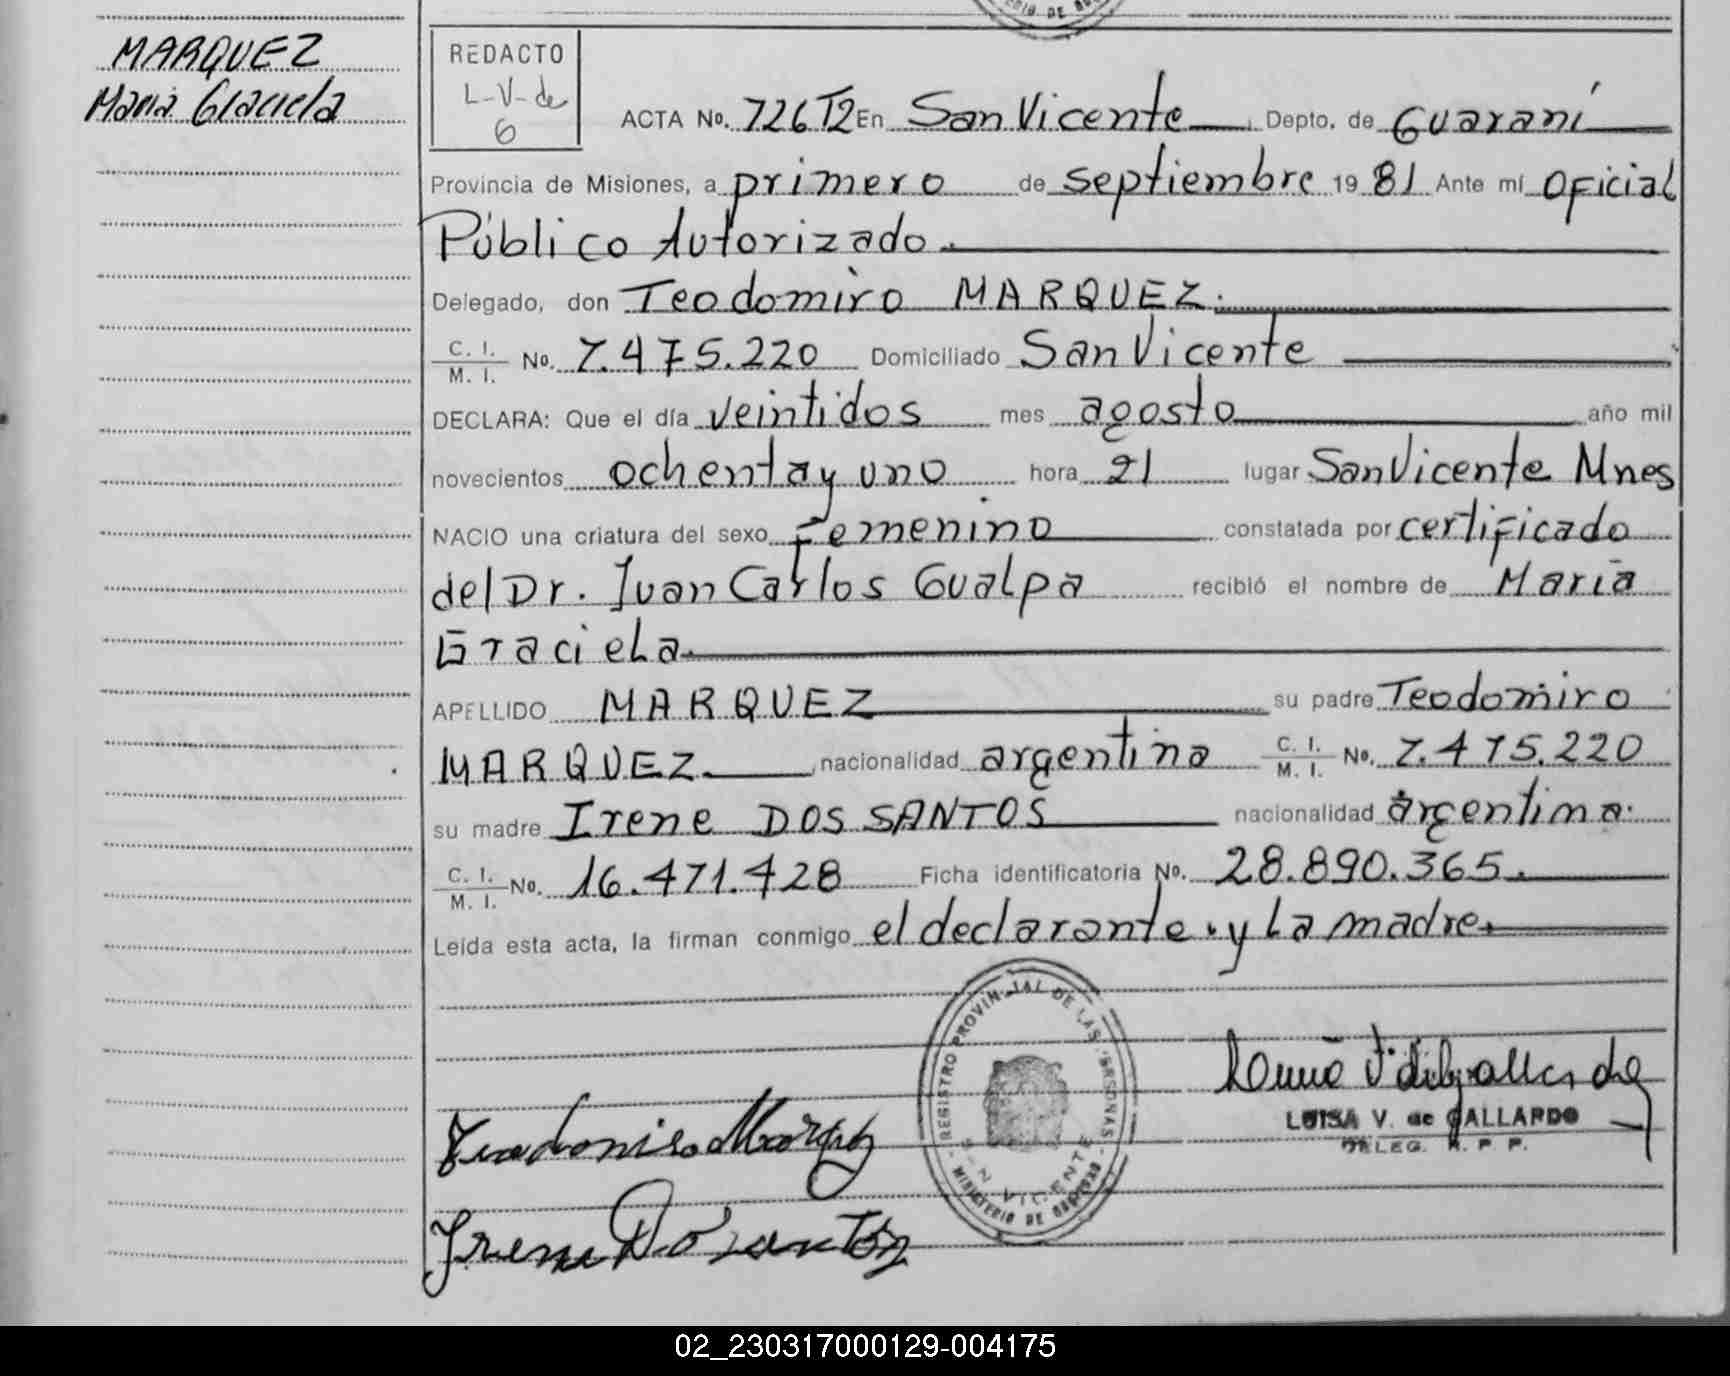 MARQUEZ
Maria Graciela
REDACTO
L-V-de
G
ACTA No. 726 T2 En San Vicente Depto. de Guaraní
Provincia de Misiones, a primero de septiembre 19 81 Ante mí Oficial
Público Autorizado.
Delegado, don Teodomiro MARQUEZ.
C. I.
M. I. No. 7.475.220 Domiciliado San Vicente
DECLARA: Que el día veintidos mes agosto año mil
novecientos ochenta y uno hora 21 lugar San Vicente Mnes
NACIO una criatura del sexo Femenino constatada por certificado
del Dr. Juan Carlos Gualpa recibió el nombre de Maria
Graciela.
APELLIDO MARQUEZ su padre Teodomiro
MARQUEZ. nacionalidad argentina C. I.
M. I. No. 7.475.220
su madre Irene DOS SANTOS nacionalidad argentina.
C. I.
M. I. No. 16.471.428 Ficha identificatoria No. 28.890.365.
Leída esta acta, la firman conmigo el declarante. y La madre.
REGISTRO PROVINCIAL DE LAS PERSONAS
SAN VICENTE
MINISTERIO DE GOBIERNO
LUISA V. de GALLARDO
DELEG. R. P. P.
Teodomiro Marquez
Irene Do santos
02_230317000129-004175